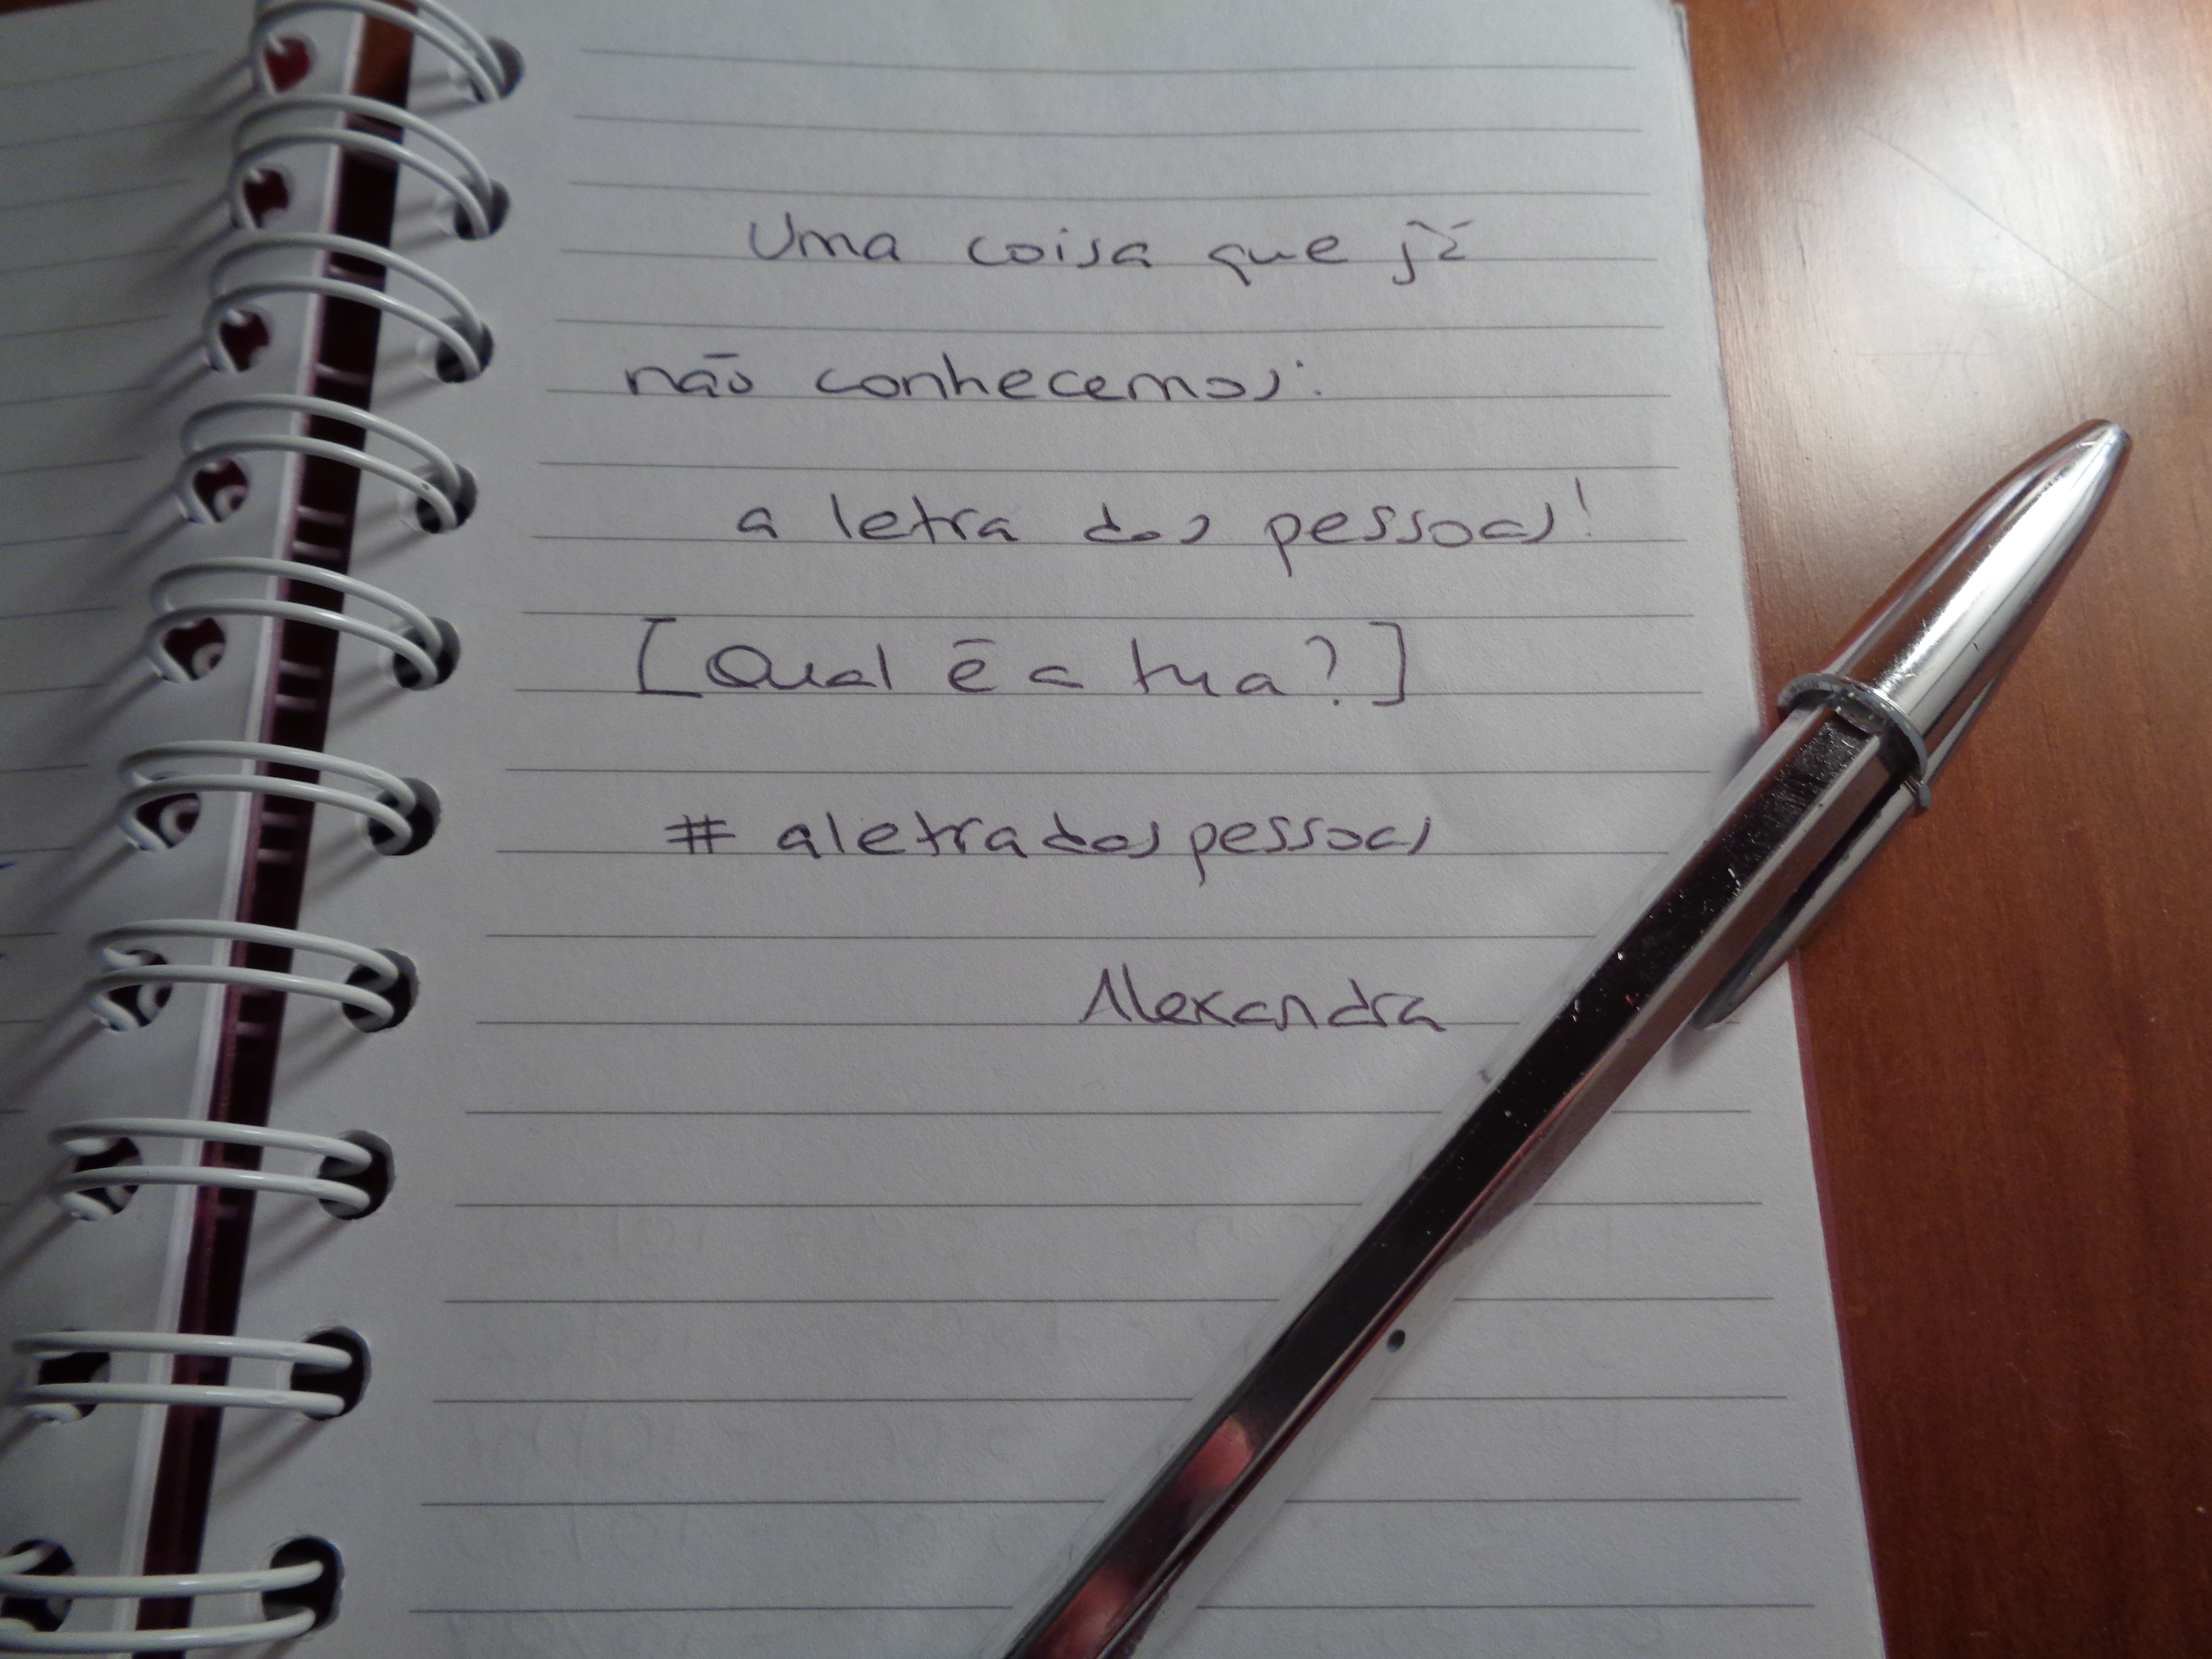 Uma coisa que já
não conhecemos:
a letra das pessoas!
[Qual é a tua?]
# aletradaspessoas
Alexandra